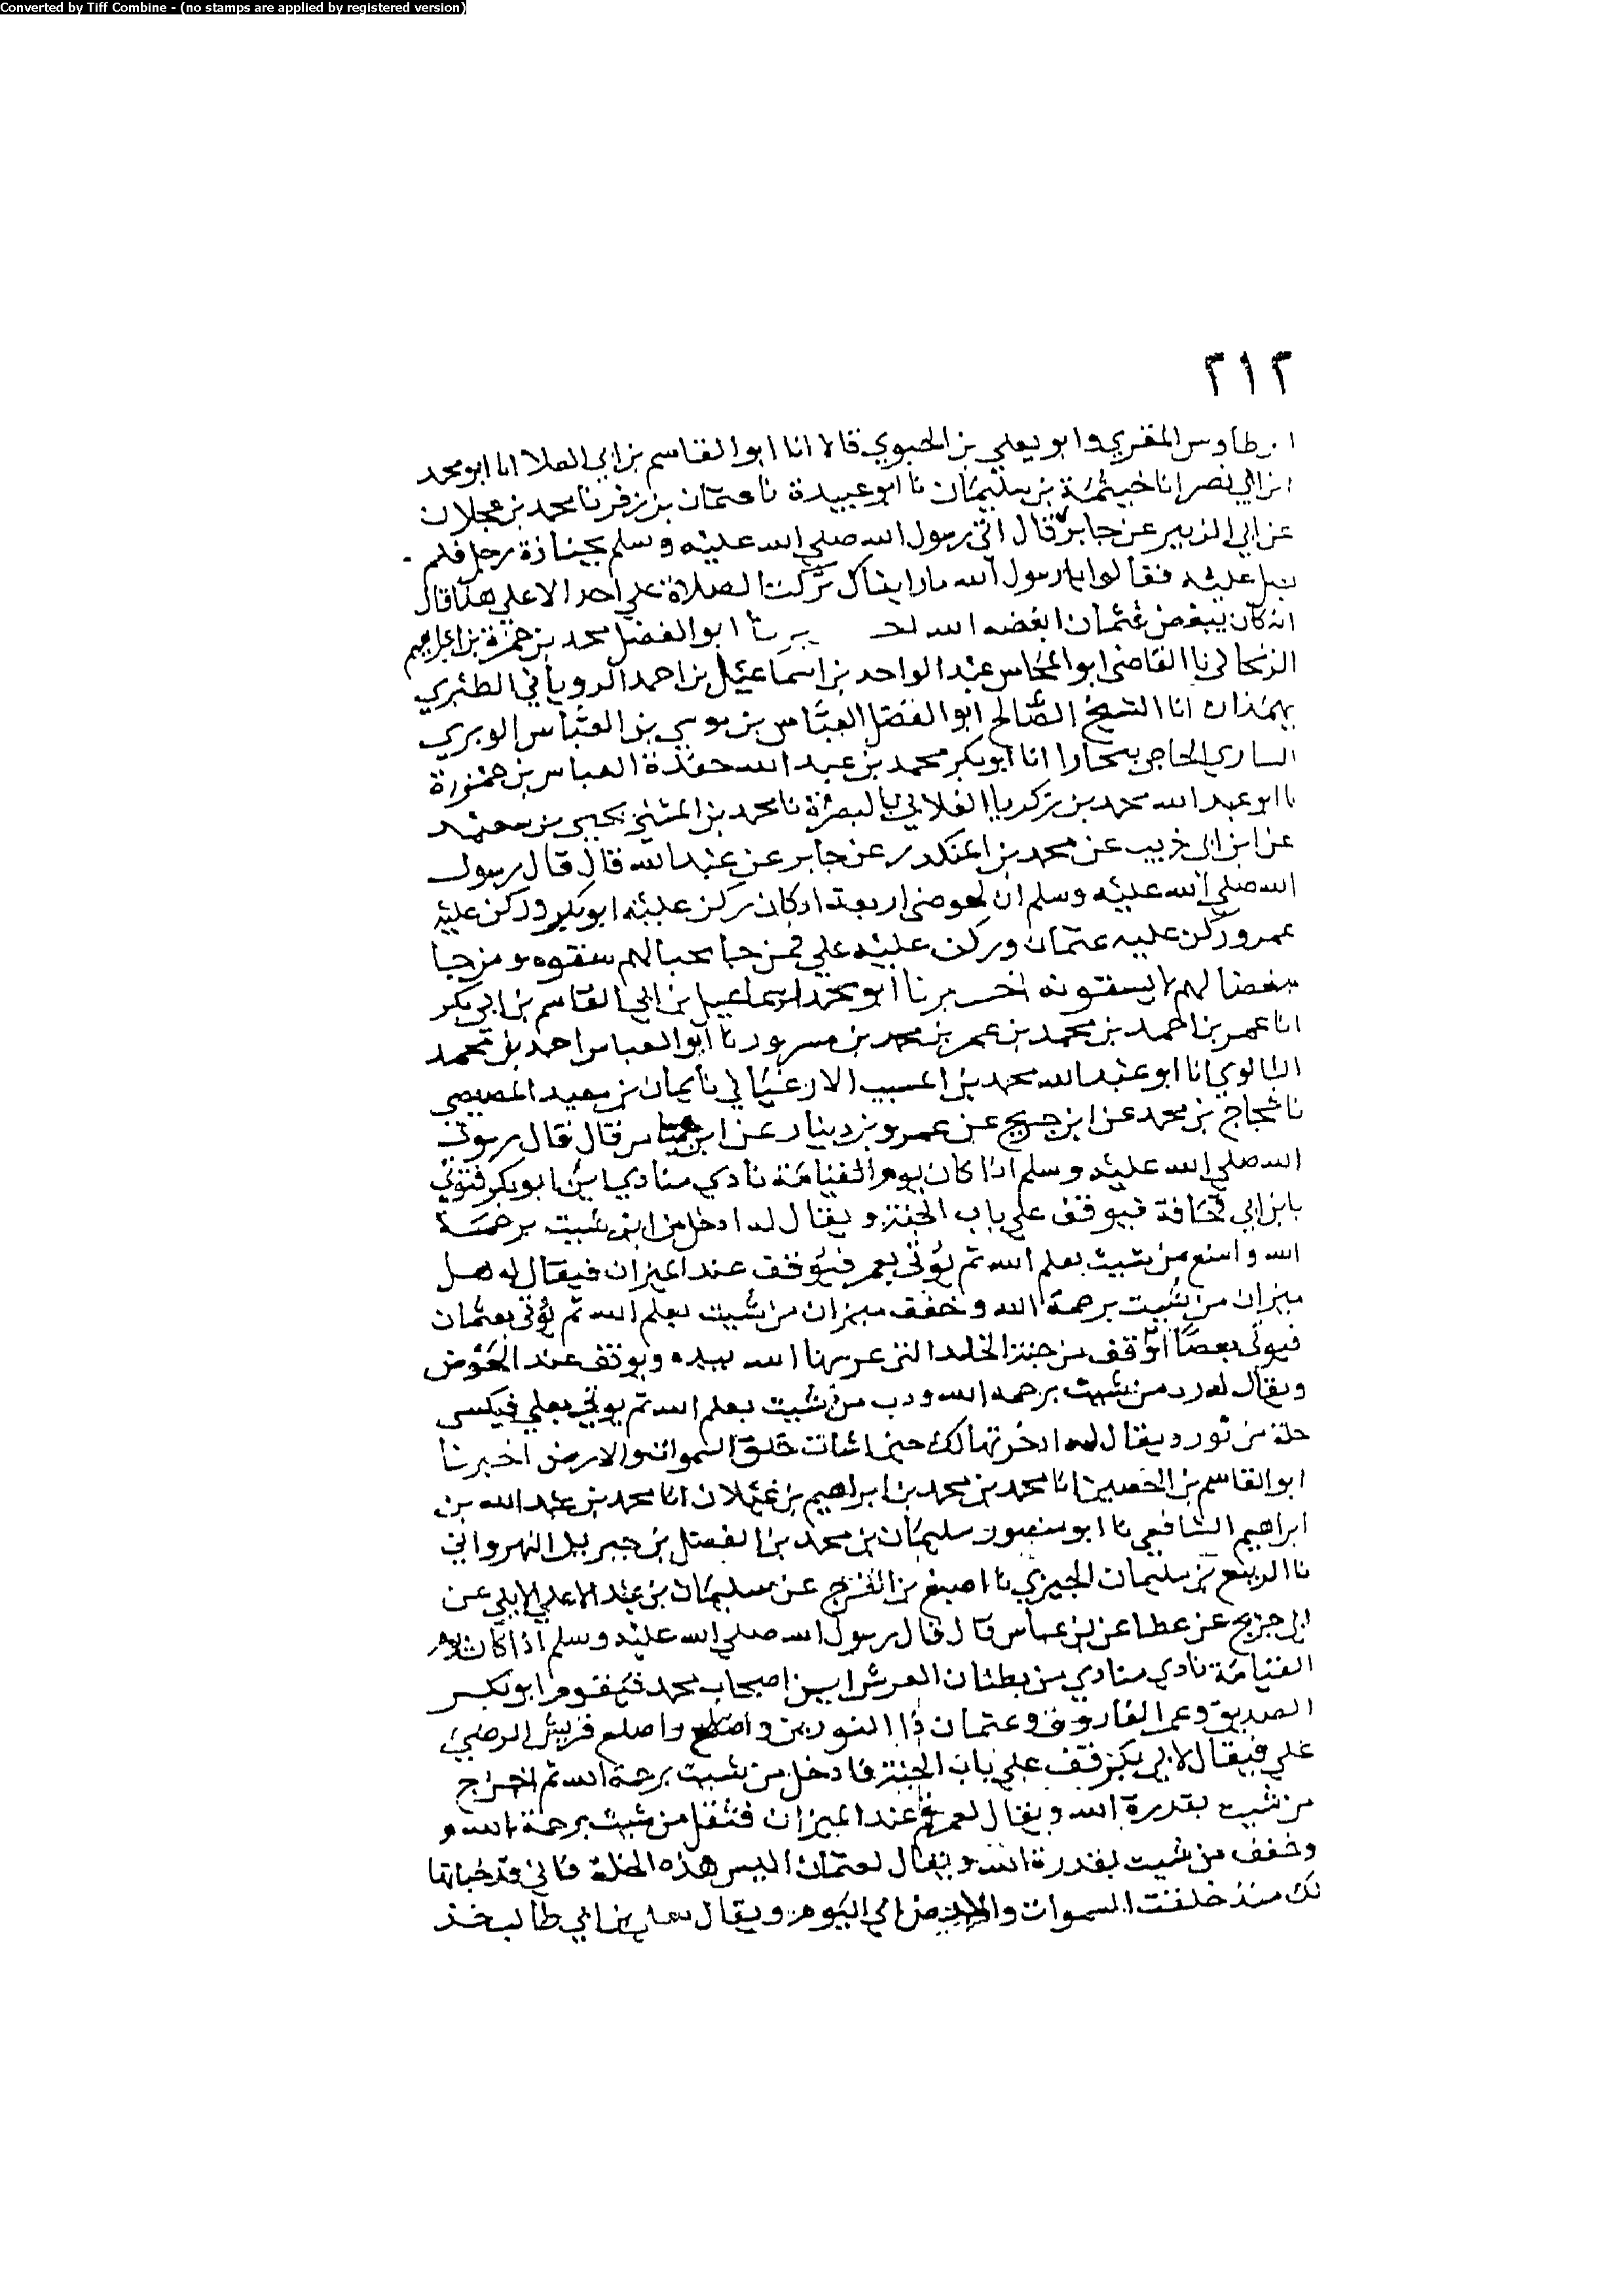 Converted by Tiff Combine - (no stamps are applied by registered version)
٢١٢
بن طاوس المقري وابو يعلي بن الحبوبي قالا انا ابو القاسم بن ابي العلا انا ابو محمد
بن ابي نصر انا خيثمة بن سليمان نا ابو عبيدة نا عثمان بن زفر نا محمد بن عجلان
عن ابي الزبير عن جابر قال اتي رسول الله صلي الله عليه وسلم بجنازة رجل فلم
يصل عليه فقالوا يا رسول الله ما رايناك تركت الصلاة علي احد الا علي هذا قال
انه كان يبغض عثمان ابغضه الله ابو الفضل محمد بن حمزة بن ابراهيم
الزنجاني نا القاضي ابو المحاسن عبد الواحد بن اسماعيل بن احمد الروياني الطبري
بهمذان انا الشيخ الصالح ابو الفضل العباس بن موسي بن العباس الوبري
الساري الحاجي ببخارا انا ابو بكر محمد بن عبد الله حفدة العباس بن حمزة
نا ابو عبد الله محمد بن زكريا الغلابي بالبصرة نا محمد بن المثني يحيي بن سعيد
عن ابن ابي ذيب عن محمد بن المنكدر عن جابر عن عبد الله قال قال رسول
الله صلي الله عليه وسلم ان لحوضي اربعة اركان ركن عليه ابو بكر وركن عليه
عمر وركن عليه عثمان وركن عليه علي فمن جا محبا لهم سقوه ومن جا
مبغضا لهم لا يسقونه اخبرنا ابو محمد اسماعيل بن ابي القاسم بن ابي بكر
انا عمر بن احمد بن محمد بن عمر بن محمد بن مسرور نا ابو العباس احمد بن محمد
البالوي انا ابو عبد الله محمد بن المسيب الارغياني نا يمان بن سعيد المصيصي
نا حجاج بن محمد عن ابن جريج عن عمرو بن دينار عن ابن عباس قال قال رسول
الله صلي الله عليه وسلم اذا كان يوم القيامة نادي منادي اين ابو بكر فيوتي
بابن ابي قحافة فيوقف علي باب الجنة ويقال له ادخل من شيت برحمة
الله وامنع من شيت بعلم الله ثم يوتي بعمر فيوقف عند الميزان فيقال له
ميزان من شيت برحمة الله وخفف ميزان من شيت بعلم الله ثم يوتي بعثمان
فيوتي بعصا من جنة الخلد التي غرسها الله بيده ويوقف عند الحوض
ويقال له رد من شيت برحمه الله وذب من شيت بعلم الله ثم يوتي بعلي فيكسي
حلة من نور ويقال له ادخرتها لك حين انشات خلق السموات والارض اخبرنا
ابو القاسم بن الحصين انا محمد بن محمد بن ابراهيم بن غيلان انا محمد بن عبد الله بن
ابراهيم الشافعي نا ابو منصور سليمان بن محمد بن الفضل بن جبريل النهرواني
نا الربيع بن سليمان الجيزي نا اصبغ بن الفرج عن سليمان بن عبد الاعلي الايلي عن
ابن جريج عن عطا عن ابن عباس قال قال رسول الله صلي الله عليه وسلم اذا كان يوم
القيامة نادي منادي من بطنان العرش اين اصحاب محمد فيقوم ابو بكر
الصديق وعمر الفاروق وعثمان ذا النورين واصلع قريش الرضي
علي فيقال لابي بكر قف علي باب الجنة فادخل من شيت برحمة الله ثم اخرج
من شيت بقدرة الله ويقال لعمر قم عند الميزان فثقل من شيت برحمة الله و
وخفف من شيت بقدرة الله ويقال لعثمان البس هذه الحلة فاني قد خباتها
لك منذ خلقت السموات والارض الي اليوم ويقال لعلي بن ابي طالب خذ